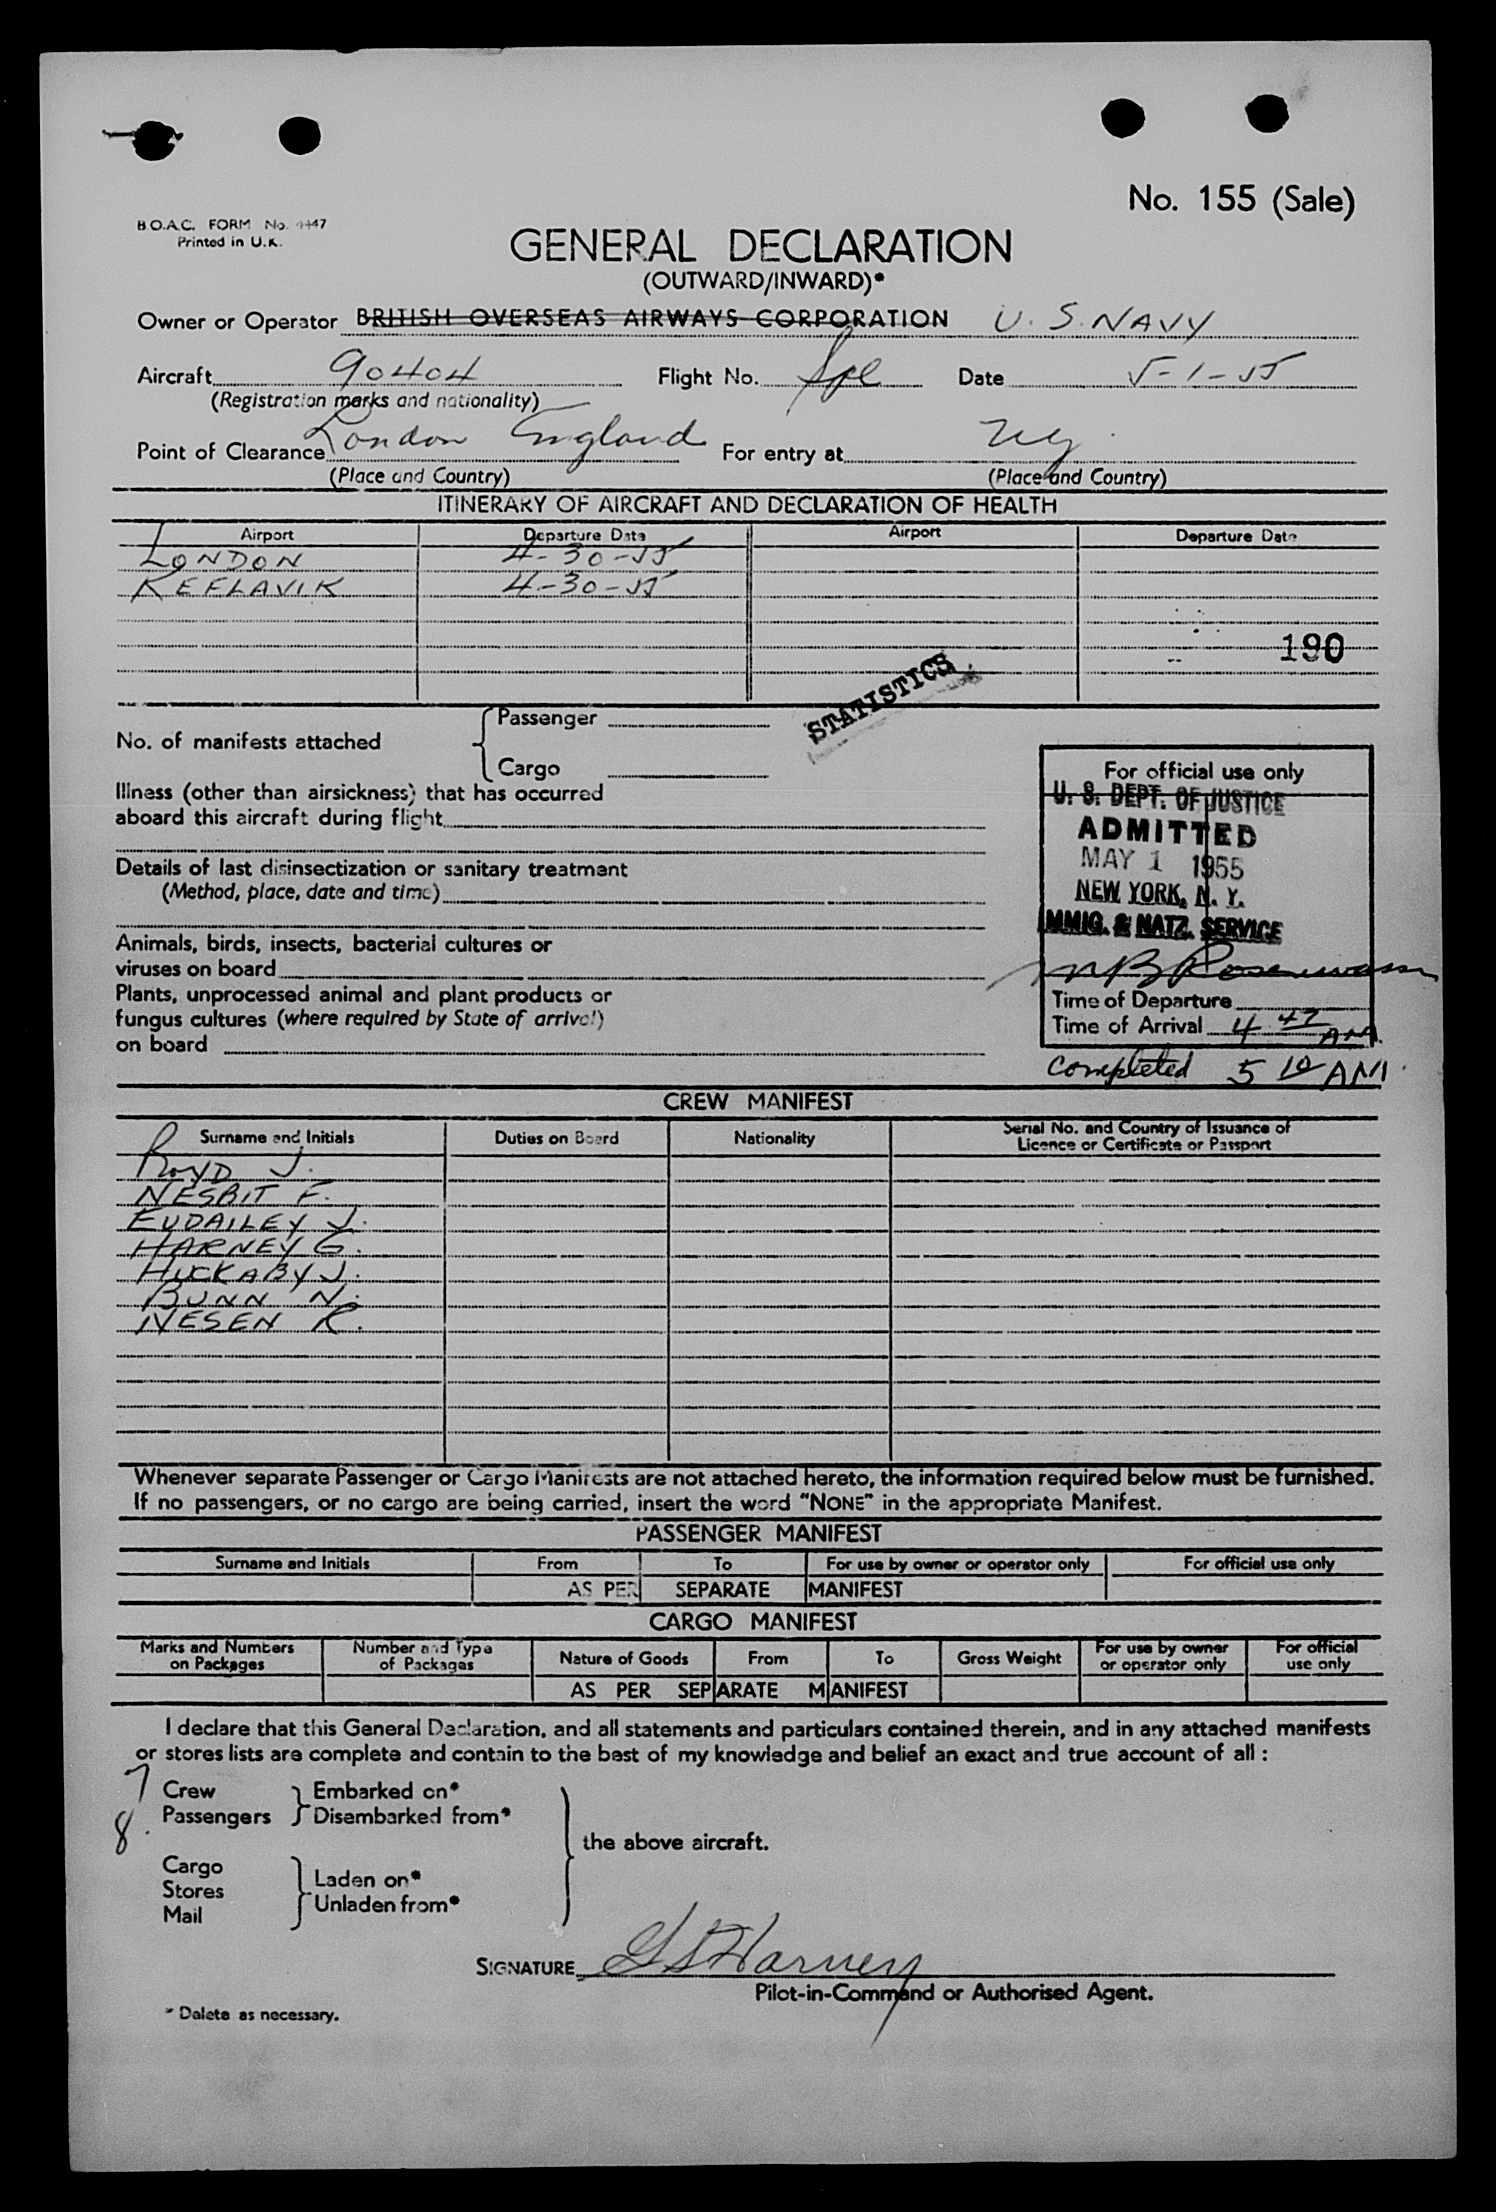 No. 155 (Sale)
B.O.A.C. FORM No. 4447
Printed in U.K.
GENERAL DECLARATION
(OUTWARD/INWARD)*
Owner or Operator BRITISH OVERSEAS AIRWAYS CORPORATION U. S. NAVY
Aircraft 90404 Flight No. Spl Date 5-1-55
(Registration marks and nationality)
Point of Clearance London England For entry at NY.
(Place and Country) (Place and Country)
ITINERARY OF AIRCRAFT AND DECLARATION OF HEALTH
Airport Departure Date Airport Departure Date
LONDON 4-30-55
KEFLAVIK 4-30-55
190
STATISTICS
Passenger
No. of manifests attached
Cargo
Illness (other than airsickness) that has occurred
aboard this aircraft during flight
Details of last disinsectization or sanitary treatment
(Method, place, date and time)
Animals, birds, insects, bacterial cultures or
viruses on board
Plants, unprocessed animal and plant products or
fungus cultures (where required by State of arrival)
on board
For official use only
U. S. DEPT. OF JUSTICE
ADMITTED
MAY 1 1955
NEW YORK, N. Y.
IMMIG. & NATZ. SERVICE
Time of Departure
Time of Arrival 4 47 AM.
Completed 5 10 AM.
CREW MANIFEST
Surname and Initials Duties on Board Nationality Serial No. and Country of Issuance of
Licence or Certificate or Passport
J.
NESBIT F.
EUDAILEY J.
HARNEY G.
HUCKABY J.
BUNN N.
NESEN R.
Whenever separate Passenger or Cargo Manifests are not attached hereto, the information required below must be furnished.
If no passengers, or no cargo are being carried, insert the word "NONE" in the appropriate Manifest.
PASSENGER MANIFEST
Surname and Initials From To For use by owner or operator only For official use only
AS PER SEPARATE MANIFEST
CARGO MANIFEST
Marks and Numbers on Packages Number and Type of Packages Nature of Goods From To Gross Weight For use by owner or operator only For official use only
AS PER SEPARATE MANIFEST
I declare that this General Declaration, and all statements and particulars contained therein, and in any attached manifests
or stores lists are complete and contain to the best of my knowledge and belief an exact and true account of all :
7 Crew Embarked on*
8. Passengers Disembarked from*
the above aircraft.
Cargo
Stores
Mail
Laden on*
Unladen from*
SIGNATURE G S Harney
Pilot-in-Command or Authorised Agent.
* Delete as necessary.